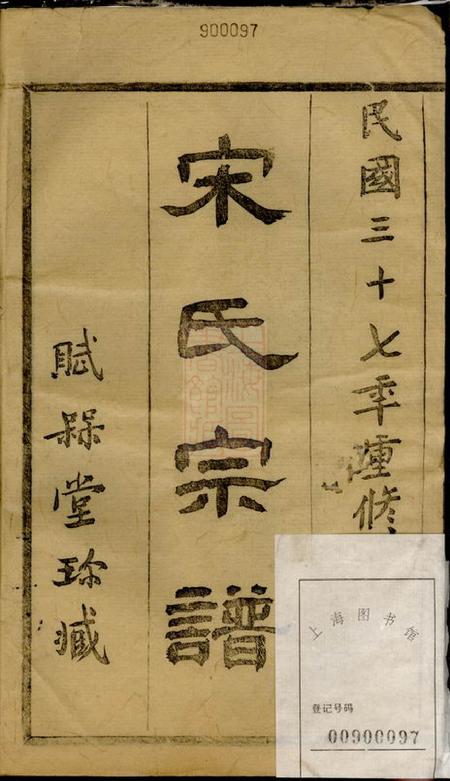 900097
民國三十七年重修
宋氏宗譜
賦梅堂珍藏
上海图书馆
登记号码
00900097